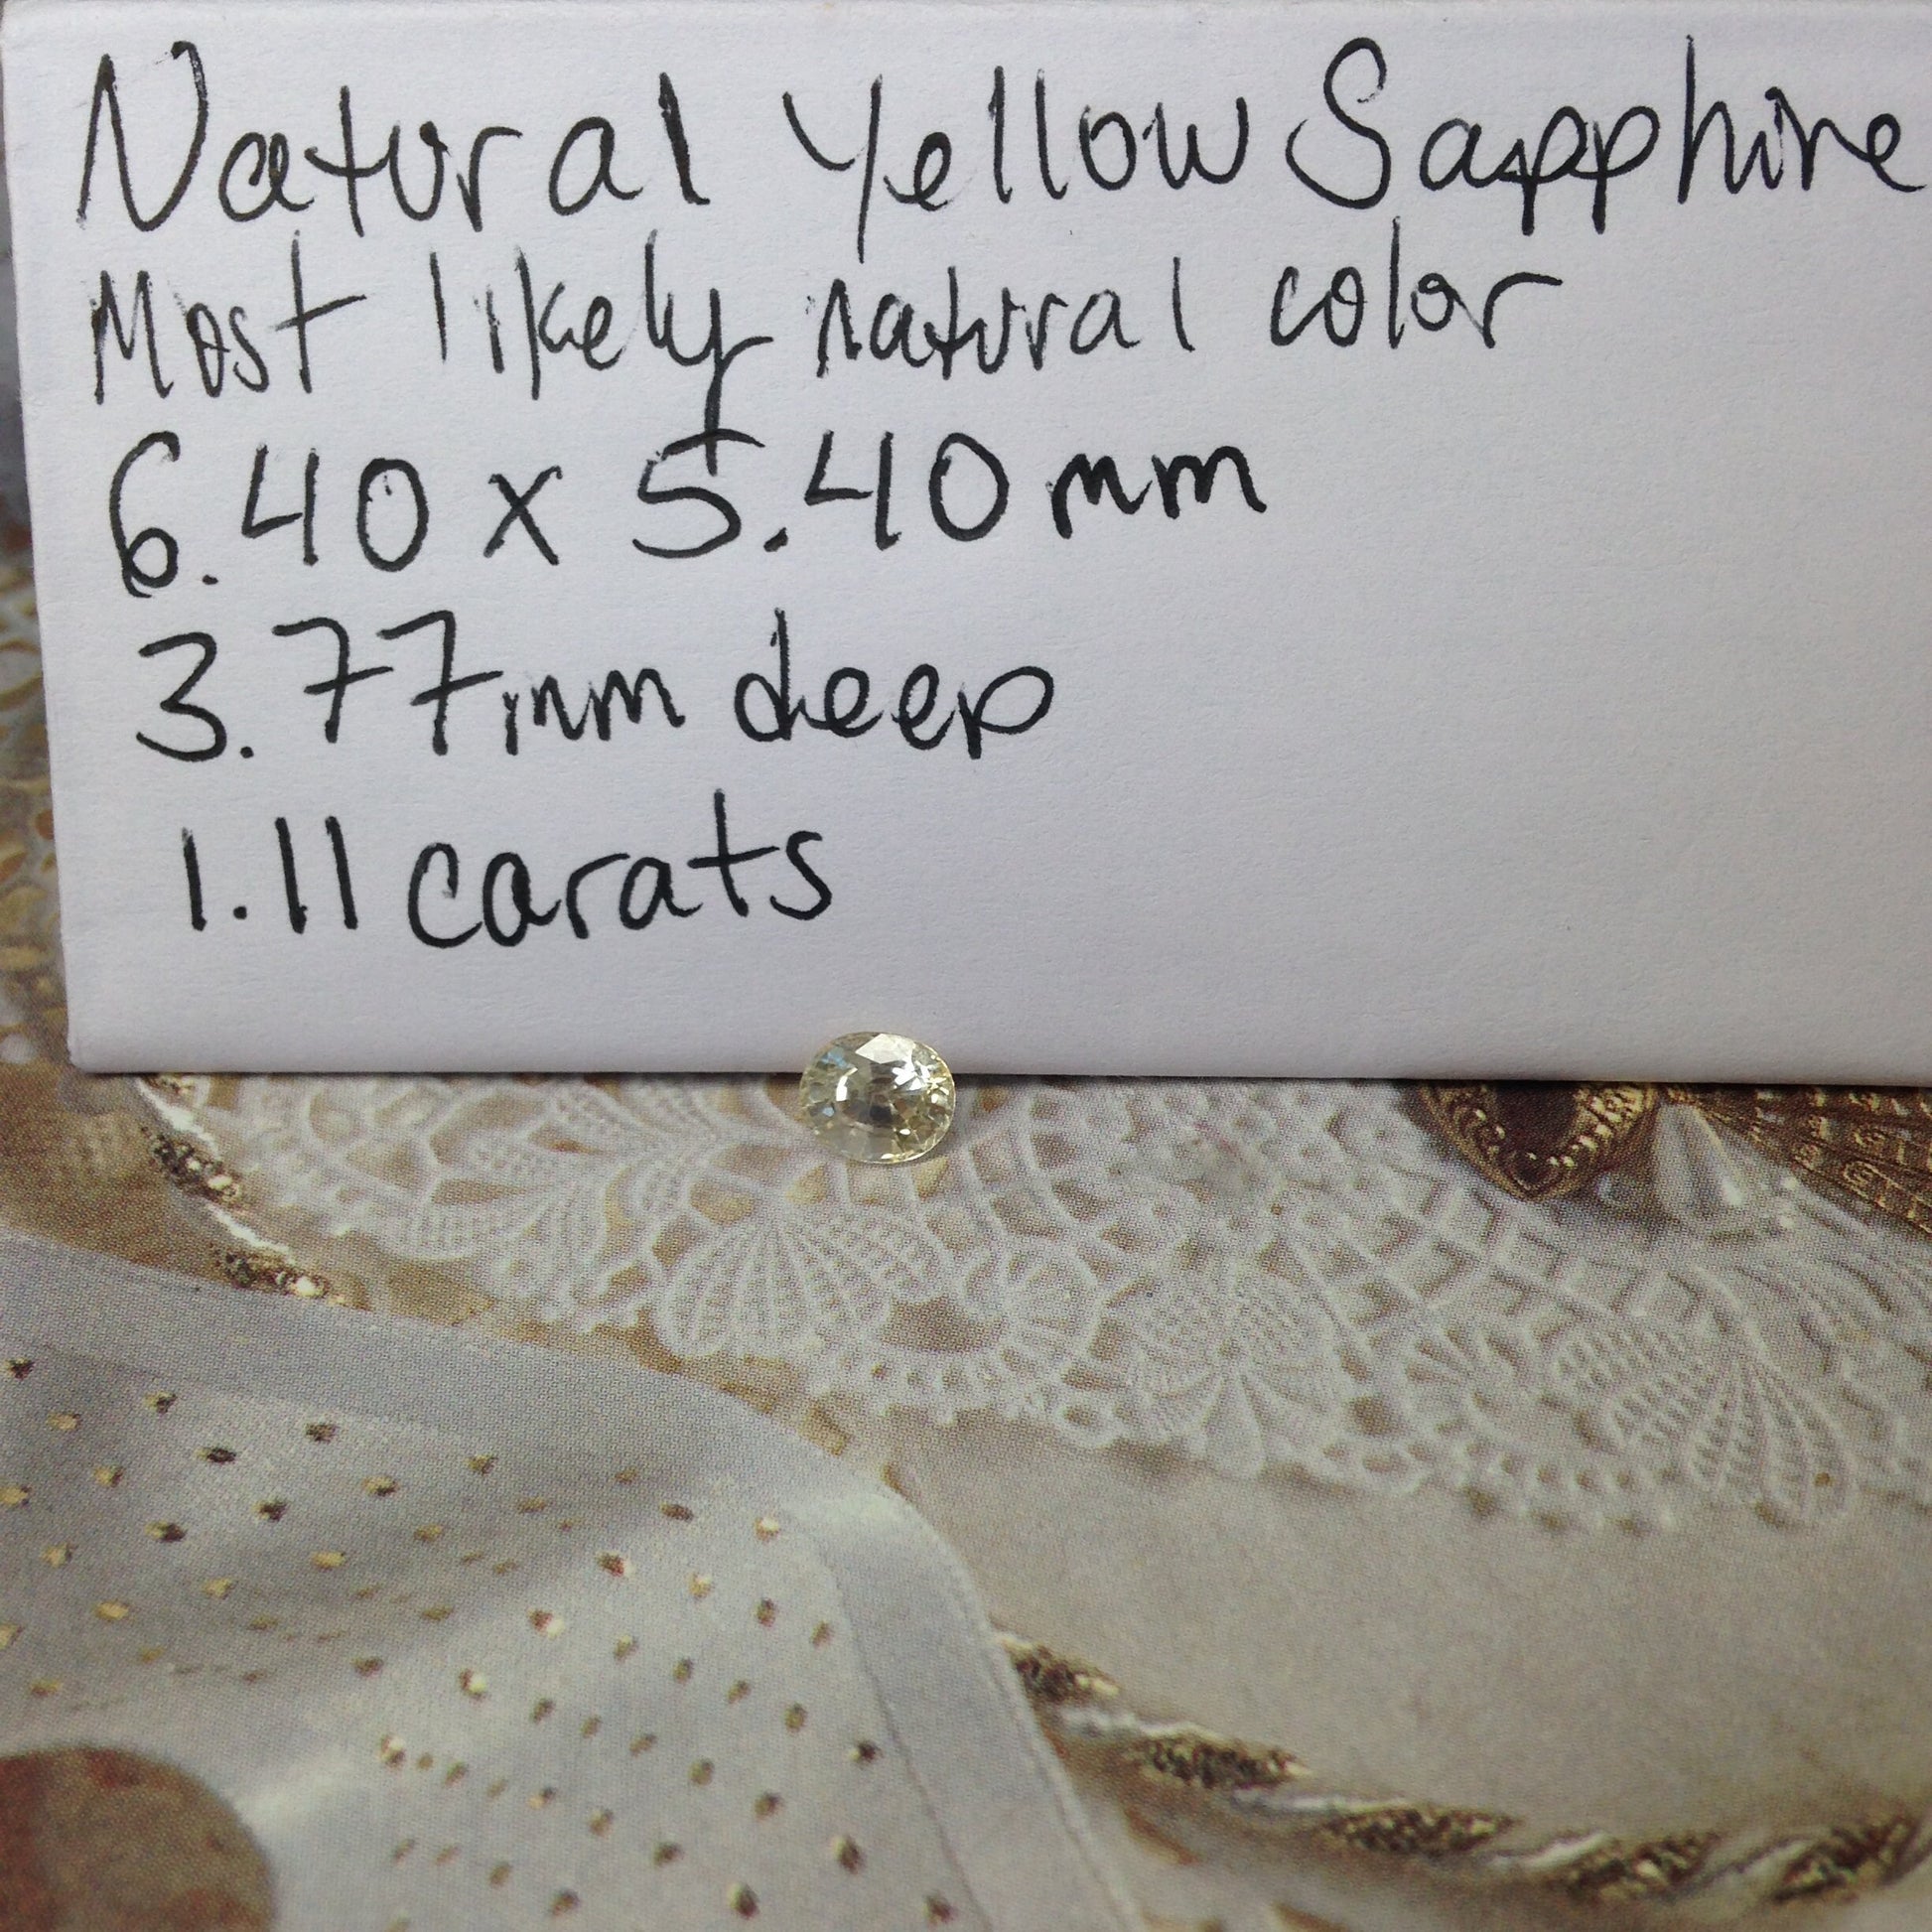 Natural Yellow Sapphire
Most likely natural color
6.40 x 5.40 mm
3.77mm deep
1.11 carats